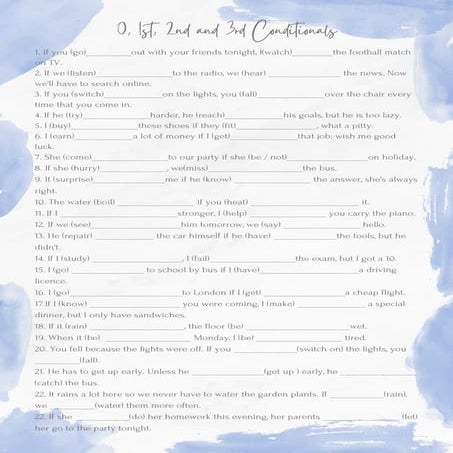 0, 1st, 2nd and 3rd Conditionals
1. If you (go)____________out with your friends tonight, I(watch)____________the football match
on TV.
2. If we (listen)____________________to the radio, we (hear) ____________________ the news. Now
we'll have to search online.
3. If you (switch)________________on the lights, you (fall)__________________over the chair every
time that you come in.
4. If he (try)__________________harder, he (reach)________________his goals, but he is too lazy.
5. I (buy)__________________these shoes if they (fit)______________________, what a pitty.
6. I (earn)________________a lot of money if I (get)__________________that job; wish me good
luck.
7. She (come)____________________to our party if she (be / not)______________________on holiday.
8. If she (hurry)__________________, we(miss)__________________________the bus.
9. It (surprise)__________________me if he (know) ____________________ the answer, she's always
right.
10. The water (boil) ______________________ if you (heat) ______________________________ it.
11. If I ________________________________stronger, I (help) ______________________ you carry the piano.
12. If we (see)________________________him tomorrow, we (say) ______________________hello.
13. He (repair) ________________ the car himself if he (have) __________________the tools, but he
didn't.
14. If I (study) __________________________, I (fail)________________the exam, but I got a 10.
15. I (go) ____________________ to school by bus if I (have)________________________a driving
licence.
16. I (go)________________________to London if I (get) ______________________a cheap flight.
17.If I (know) __________________________ you were coming, I (make) __________________ a special
dinner, but I only have sandwiches.
18. If it (rain) ______________________, the floor (be) ______________________________wet.
19. When it (be) ________________________ Monday, I (be) __________________ tired.
20. You fell because the lights were off. If you __________________(switch on) the lights, you
____________(fall).
21. He has to get up early. Unless he ______________(get up ) early, he ________________
(catch) the bus.
22. It rains a lot here so we never have to water the garden plants. If ______________(rain),
we ____________(water) them more often.
22. If she ________________(do) her homework this evening, her parents ______________________(let)
her go to the party tonight.